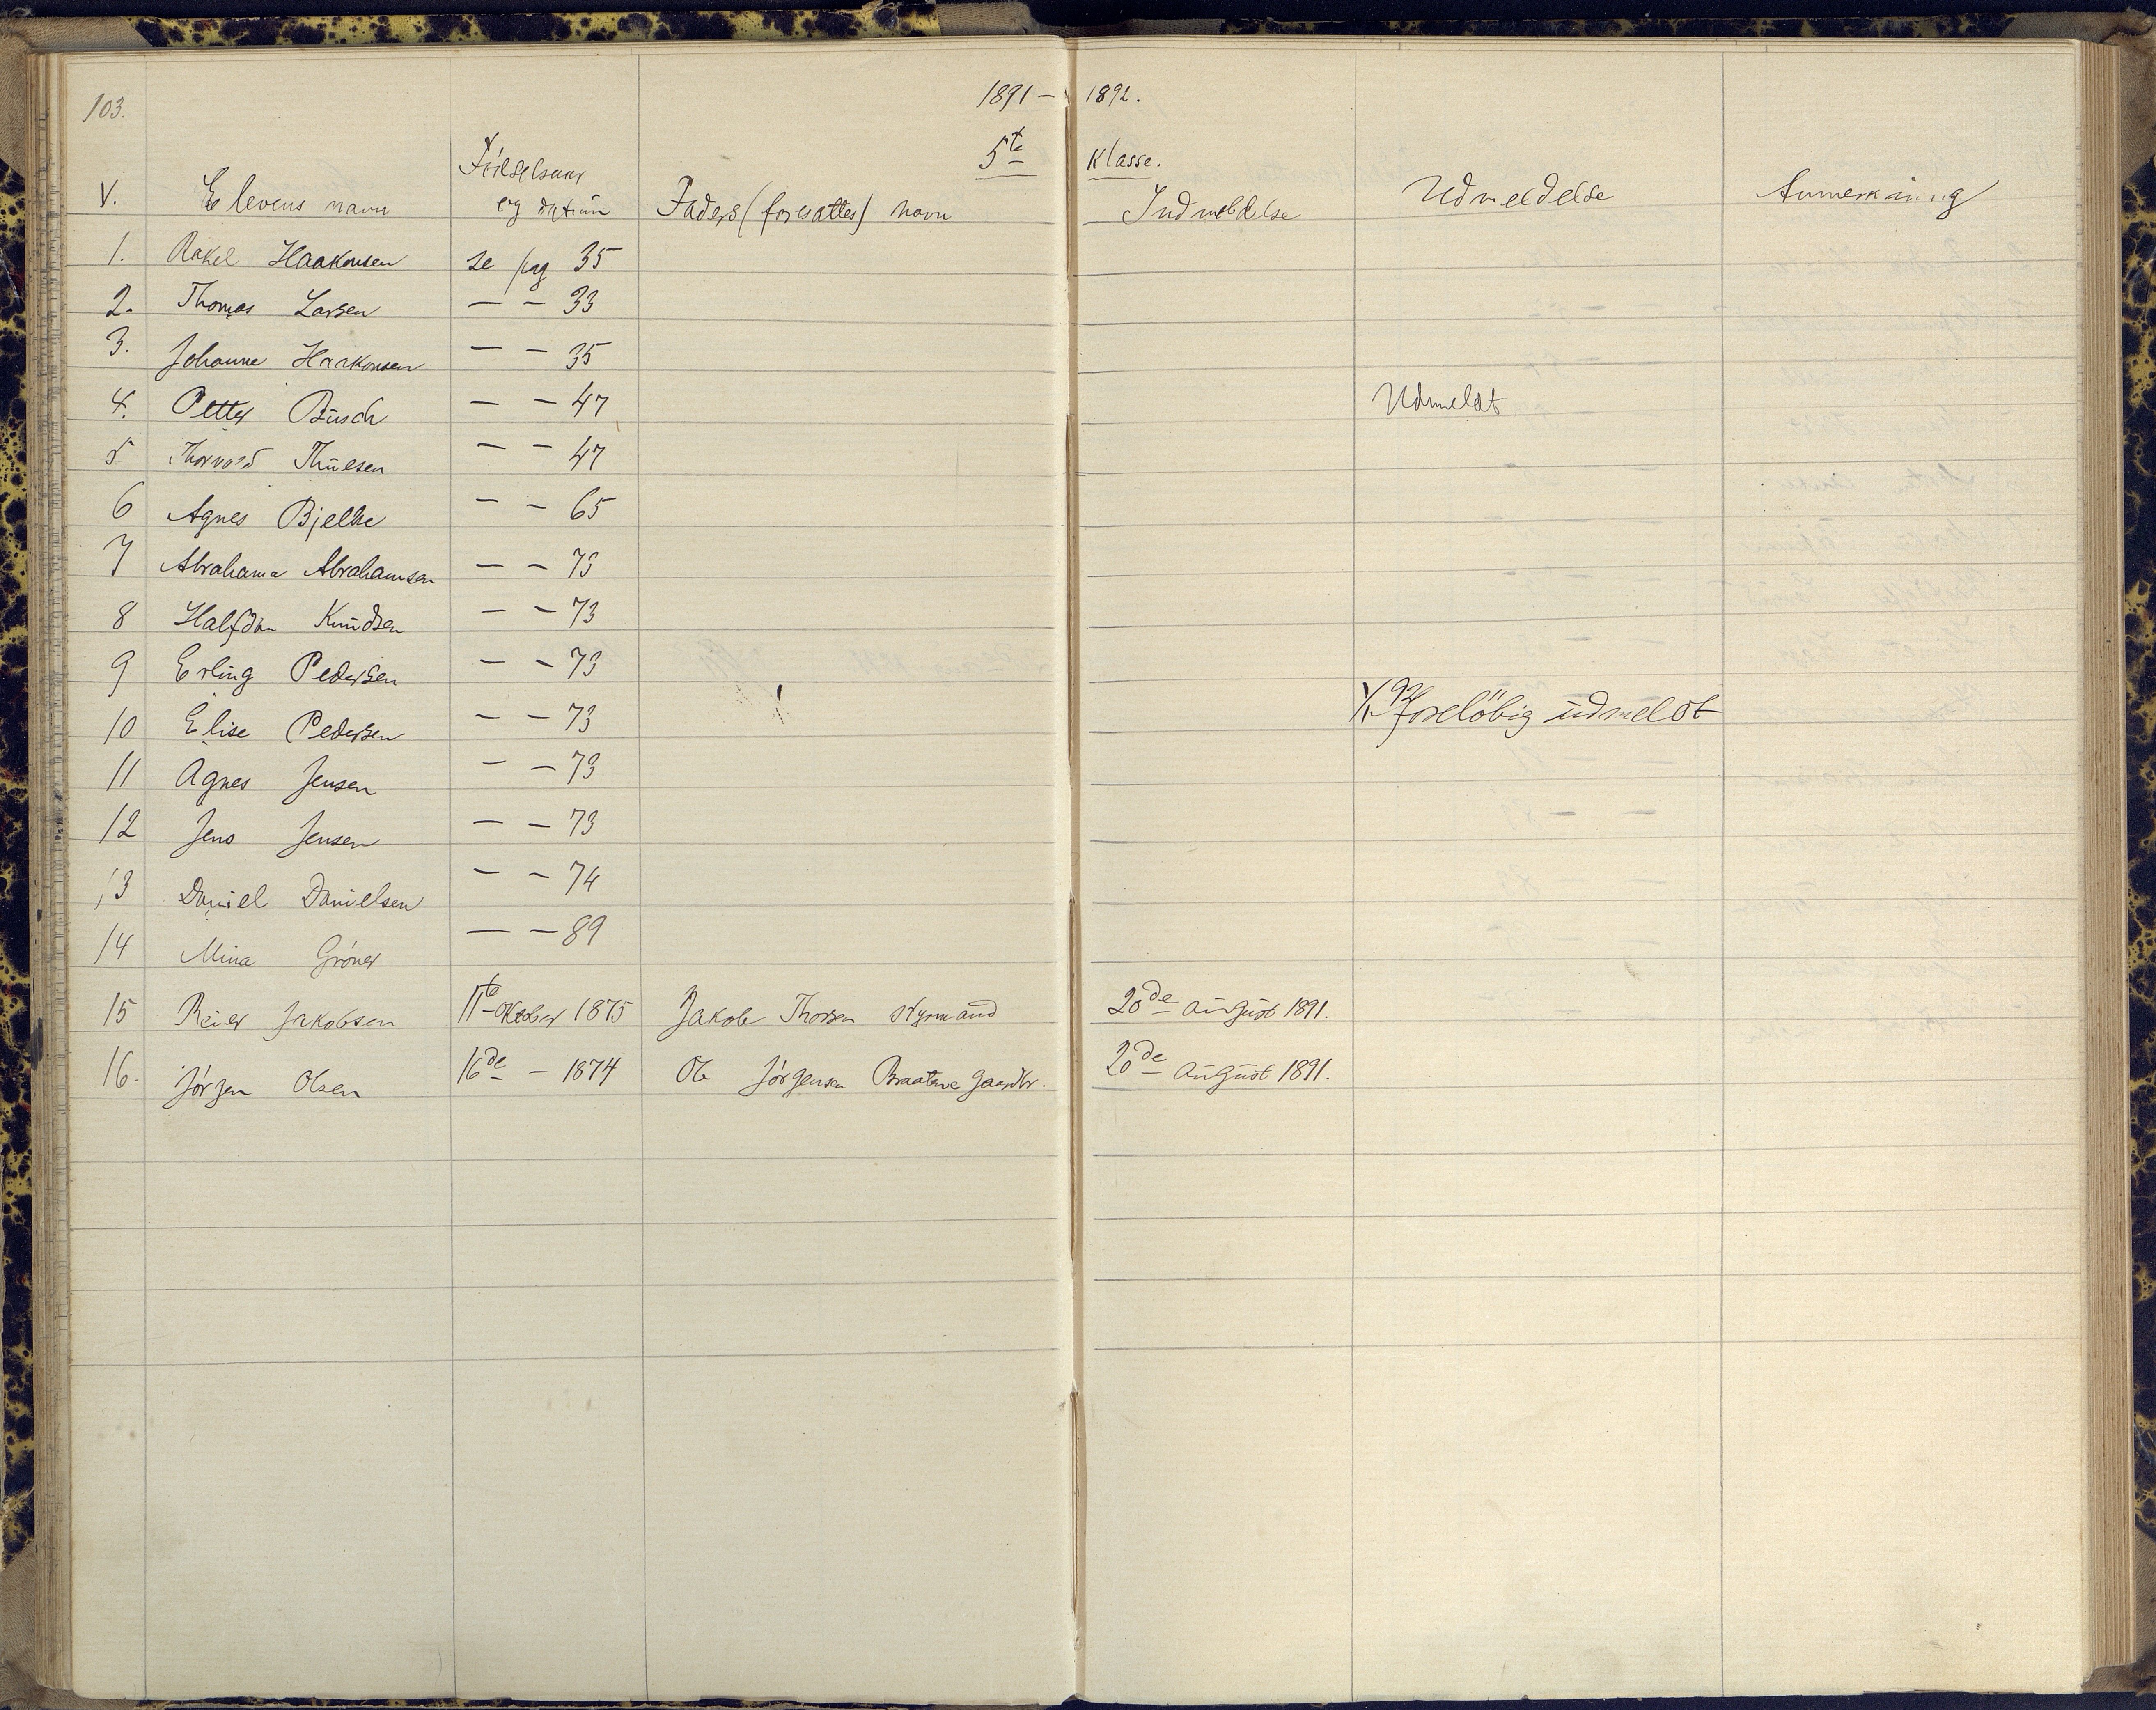 103.
1891 - 1892.
5te Klasse.
V. Elevens navn Födselsaar og datum Faders (foresattes) navn Indmeldelse Udmeldelse Anmerkning
1. Rakel Haakonsen se pag 35
2. Thomas Larsen — — 33
3. Johanne Haakonsen — — 35
4. Petter Busch — — 47 Udmeldt
5 Thorvald Thuesen — — 47
6 Agnes Bjelke — — 65
7 Abrahama Abrahamsen — — 73
8 Halfdan Knudsen — — 73
9 Erling Pedersen — — 73
10 Elise Pedersen — — 73 92 foreløbig udmeldt
11 Agnes Jensen — — 73
12 Jens Jensen — — 73
13 Daniel Danielsen — — 74
14 Mina Gröner — — 89
15 Reier Jakobsen 11te Oktober 1875 Jakob Thorsen styrmand 20de august 1891.
16. Jörgen Olsen 16de — 1874 Ole Jörgensen Braatene gaardbr. 20de august 1891.